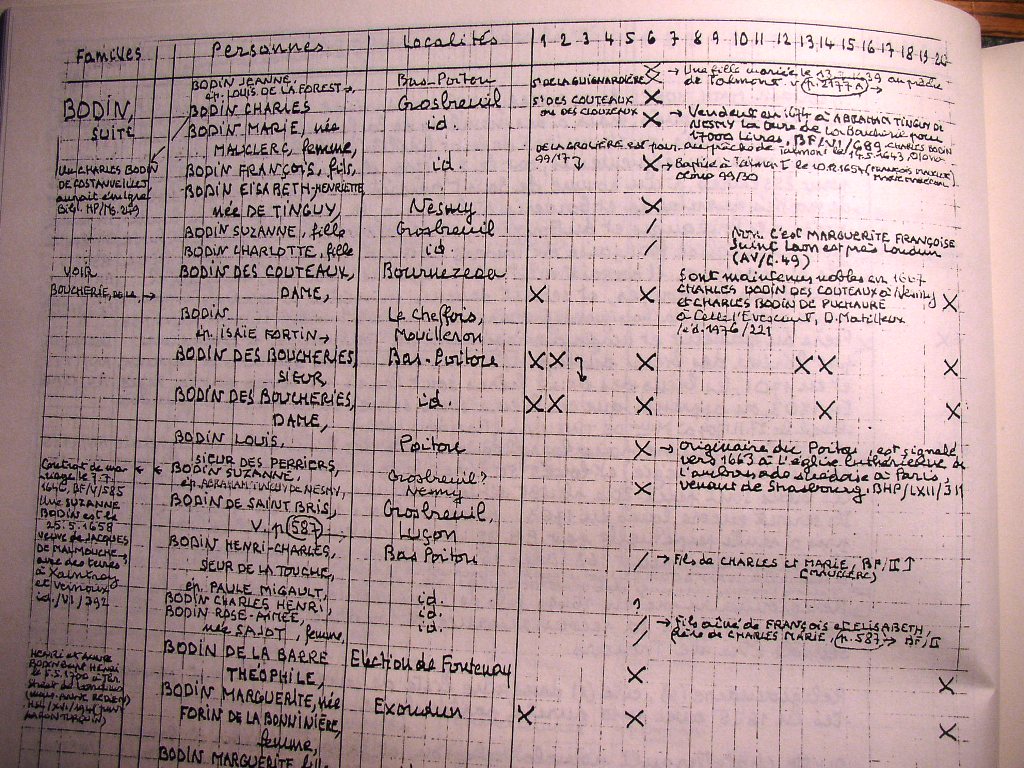 Familles Personnes Localités 1 2 3 4 5 6 7 8 9 10 11 12 13 14 15 16 17 18 19 20
BODIN JEANNE, Bas-Poitou Sr DE LA GUIGNARDIÈRE X → Une fille mariée le 1639 au prêche
ép. LOUIS DE LA FOREST →, de Talmont v p. 2177A →
BODIN, BODIN CHARLES Grosbreuil Sr DES COUTEAUX X
SUITE BODIN MARIE, née id. ou DES CLOUZEAUX X → Vendent en 1674 à ABRAHAM TINGUY DE
NESMY la terre de la Boucherie pour
MAUCLERC, femme, 17000 livres, BF/VI/689. CHARLES BODIN
DE LA GROLIÈRE est au prêche de Talmont le 1643,
Un CHARLES BODIN BODIN FRANÇOIS, fils, id. 99/17 X → Baptisé à Talmont le 1657
DE COSTANVEILLES BODIN ELISABETH-HENRIETTE 99/30
aurait émigré née DE TINGUY, Nesmy X
BODIN SUZANNE, fille Grosbreuil / Non. C'est MARGUERITE FRANÇOISE
BODIN CHARLOTTE, fille id. / Saint Laon est près Loudun
(AV/C. 49)
VOIR BODIN DES COUTEAUX, Bournezeau Sont maintenus nobles en 1667
BOUCHERIE, DE LA → DAME, X X CHARLES BODIN DES COUTEAUX à Nesmy X
et CHARLES BODIN DE PUCHAURE
BODIN Le Cheffois, à Celle l'Evescault, D. Matilleux
ép. ISAIE FORTIN → Mouilleron id. 1976/221
BODIN DES BOUCHERIES, Bas-Poitou X X X X X X
SIEUR,
BODIN DES BOUCHERIES, id. X X X X X
DAME,
BODIN LOUIS, Poitou X → Originaire du Poitou, est signalé
SIEUR DES PERRIERS, vers 1663 à l'église luthérienne de
Contrat de ma- ← ← BODIN SUZANNE, Grosbreuil? l'ambassade suédoise à Paris,
riage le 7.7. ép. ABRAHAM TINGUY DE NESMY, Nesmy X venant de Strasbourg. BHP/LXII/311
BF/V/585
Une SUZANNE BODIN DE SAINT BRIS, Grosbreuil,
BODIN est le V. p 587 → Luçon
25.5.1658
veuve de JACQUES BODIN HENRI-CHARLES, Bas Poitou / → Fils de CHARLES et MARIE, BF/II ↑
DE MALMOUCHE, SIEUR DE LA TOUCHE, (MAUCLERC)
avec des terres ép. PAULE MIGAULT,
à Xaintray BODIN CHARLES HENRI, id. ?
et Veinoux BODIN ROSE-AIMÉE, id. / → Fils aîné de FRANÇOIS et ELISABETH,
id./VI/392 née SAJOT, femme, id. / frère de CHARLES MARIE, p. 587 → BF/II
BODIN DE LA BARRE Election de Fontenay
THÉOPHILE, X X
BODIN MARGUERITE, née Exoudun X X
FORIN DE LA BONNINIÈRE, X
femme,
BODIN MARGUERITE fille